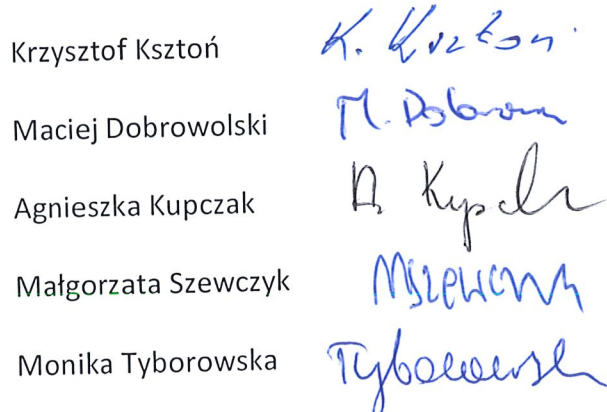 Krzysztof Ksztoń K. Ksztoń
Maciej Dobrowolski M. Dobrow
Agnieszka Kupczak A Kupcz
Małgorzata Szewczyk MSzewczyk
Monika Tyborowska Tyborowsk